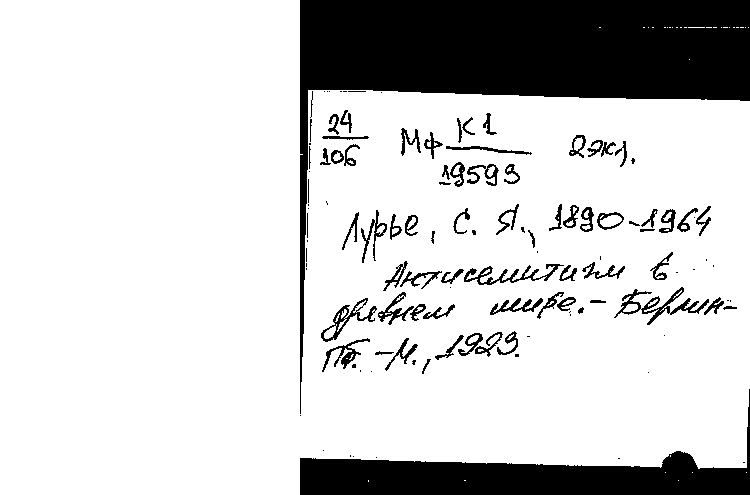 24
106
Мф К1
19593
2 экз.
Лурье, С. Я., 1890-1964
Антисемитизм в
древнем мире.- Берлин-
Пб. -М., 1923.